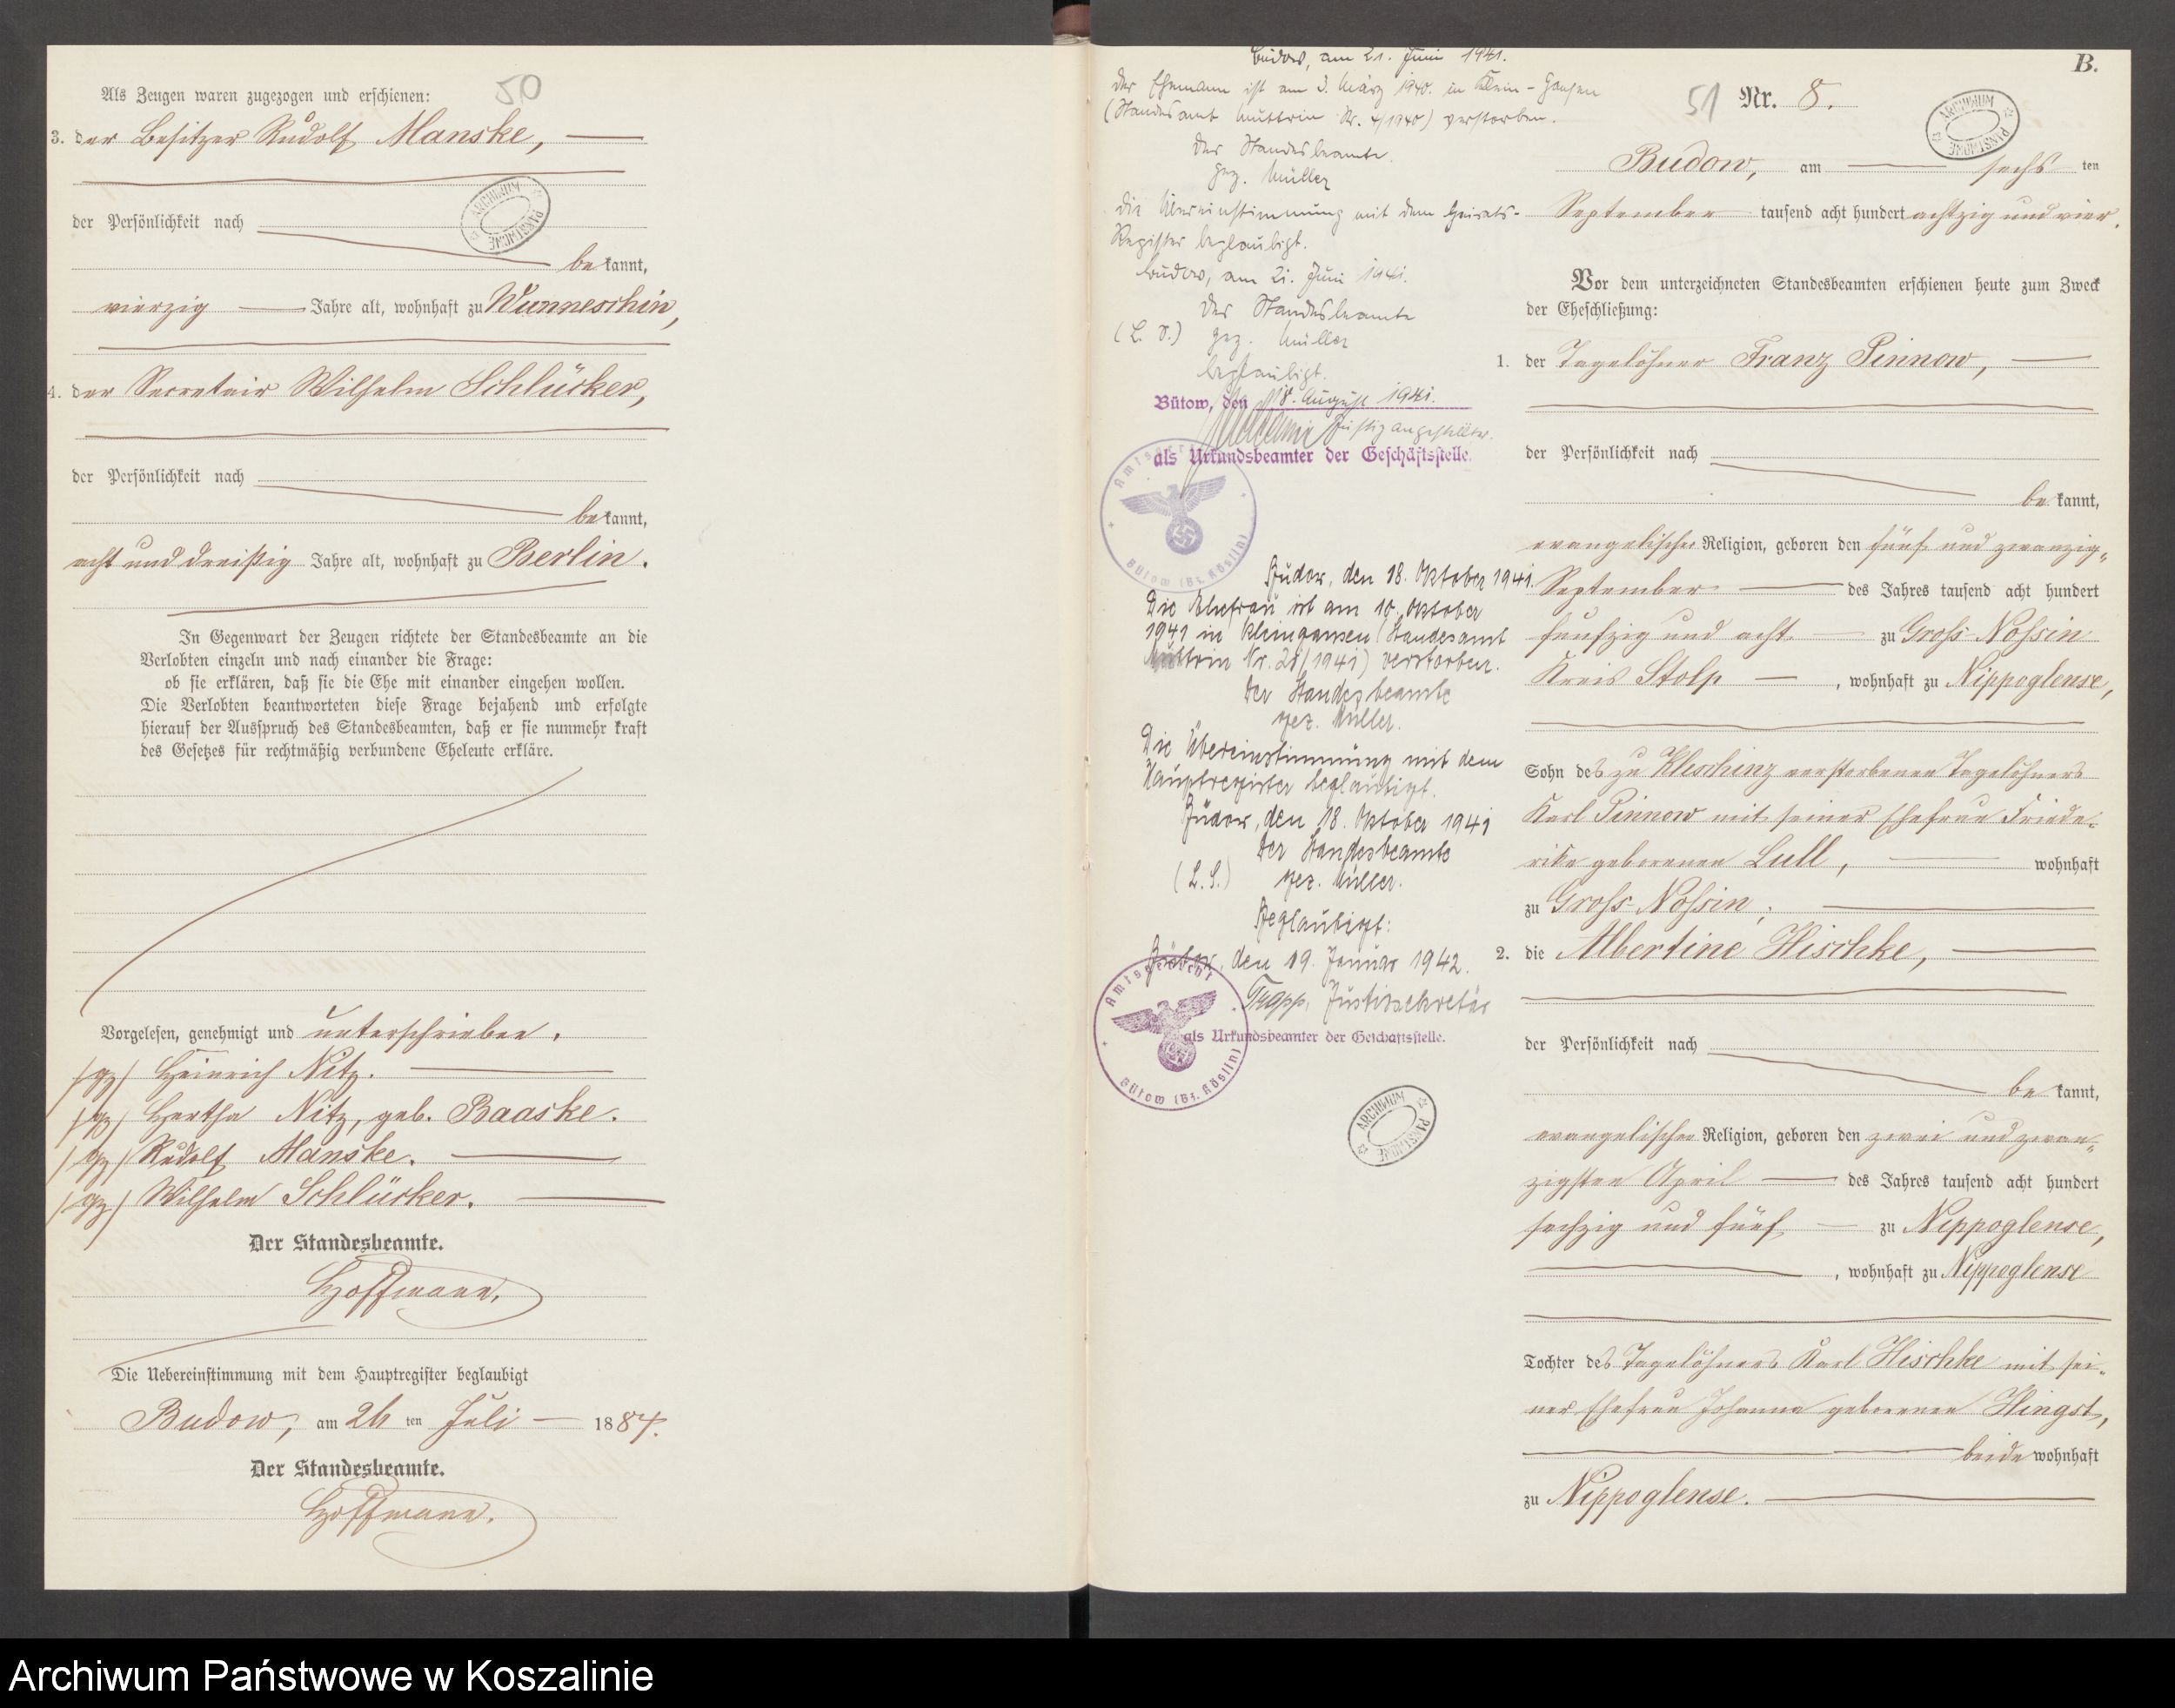 50
Als Zeugen waren zugezogen und erschienen:
3. der Besitzer Rudolf Manske,
der Persönlichkeit nach
bekannt,
vierzig Jahre alt, wohnhaft zu Wunneschin,
4. der Secretair Wilhelm Schlücker,
der Persönlichkeit nach
bekannt,
acht und dreißig Jahre alt, wohnhaft zu Berlin.
In Gegenwart der Zeugen richtete der Standesbeamte an die
Verlobten einzeln und nach einander die Frage:
ob sie erklären, daß sie die Ehe mit einander eingehen wollen.
Die Verlobten beantworteten diese Frage bejahend und erfolgte
hierauf der Ausspruch des Standesbeamten, daß er sie nunmehr kraft
des Gesetzes für rechtmäßig verbundene Eheleute erkläre.
Vorgelesen, genehmigt und unterschrieben.
/gz/ Heinrich Nitz.
/gz/ Hertha Nitz, geb. Baaske.
/gz/ Rudolf Manske.
/gz/ Wilhelm Schlücker.
Der Standesbeamte.
Hoffmann.
Die Uebereinstimmung mit dem Hauptregister beglaubigt
Budow, am 26 ten Juli 1884.
Der Standesbeamte.
Hoffmann.
Budow, am 21. Juni 1941.
Der Ehemann ist am 3. März 1940. in Klein-Gansen
(Standesamt Muttrin Nr. 4/1940) verstorben.
Der Standesbeamte.
gez. Müller
Die Übereinstimmung mit dem Heirats-
Register beglaubigt.
Budow, am 21. Juni 1941.
Der Standesbeamte
(L. S.) gez. Müller
beglaubigt.
Bütow, den 18. August 1941.
Justizangestellter.
als Urkundsbeamter der Geschäftsstelle.
Amtsgericht
Bütow (Bz. Köslin)
Budow, den 18. Oktober 1941.
Die Ehefrau ist am 10. Oktober
1941 in Kleingansen (Standesamt
Muttrin Nr. 28/1941) verstorben.
Der Standesbeamte
gez. Müller.
Die Übereinstimmung mit dem
Hauptregister beglaubigt.
Budow, den 18. Oktober 1941
Der Standesbeamte
(L. S.) gez. Müller.
Beglaubigt:
Bütow, den 19. Januar 1942.
Trapp, Justizsekretär
als Urkundsbeamter der Geschäftsstelle.
Amtsgericht
Bütow (Bz. Köslin)
ARCHIWUM PAŃSTWOWE
B.
51 Nr. 8.
ARCHIWUM PAŃSTWOWE
Budow, am sechs ten
September tausend acht hundert achtzig und vier.
Vor dem unterzeichneten Standesbeamten erschienen heute zum Zweck
der Eheschließung:
1. der Tagelöhner Franz Pinnow,
der Persönlichkeit nach
bekannt,
evangelischer Religion, geboren den fünf und zwanzig-
September des Jahres tausend acht hundert
funfzig und acht zu Gross-Nossin
Kreis Stolp, wohnhaft zu Nippoglense,
Sohn des zu Kleschinz verstorbenen Tagelöhners
Karl Pinnow mit seiner Ehefrau Friede-
rike geborenen Lull, wohnhaft
zu Gross-Nossin;
2. die Albertine Hischke,
der Persönlichkeit nach
bekannt,
evangelischer Religion, geboren den zwei und zwan-
zigsten April des Jahres tausend acht hundert
sechzig und fünf zu Nippoglense,
, wohnhaft zu Nippoglense
Tochter des Tagelöhners Karl Hischke mit sei-
ner Ehefrau Johanna geborenen Hingst,
beide wohnhaft
zu Nippoglense.
Archiwum Państwowe w Koszalinie